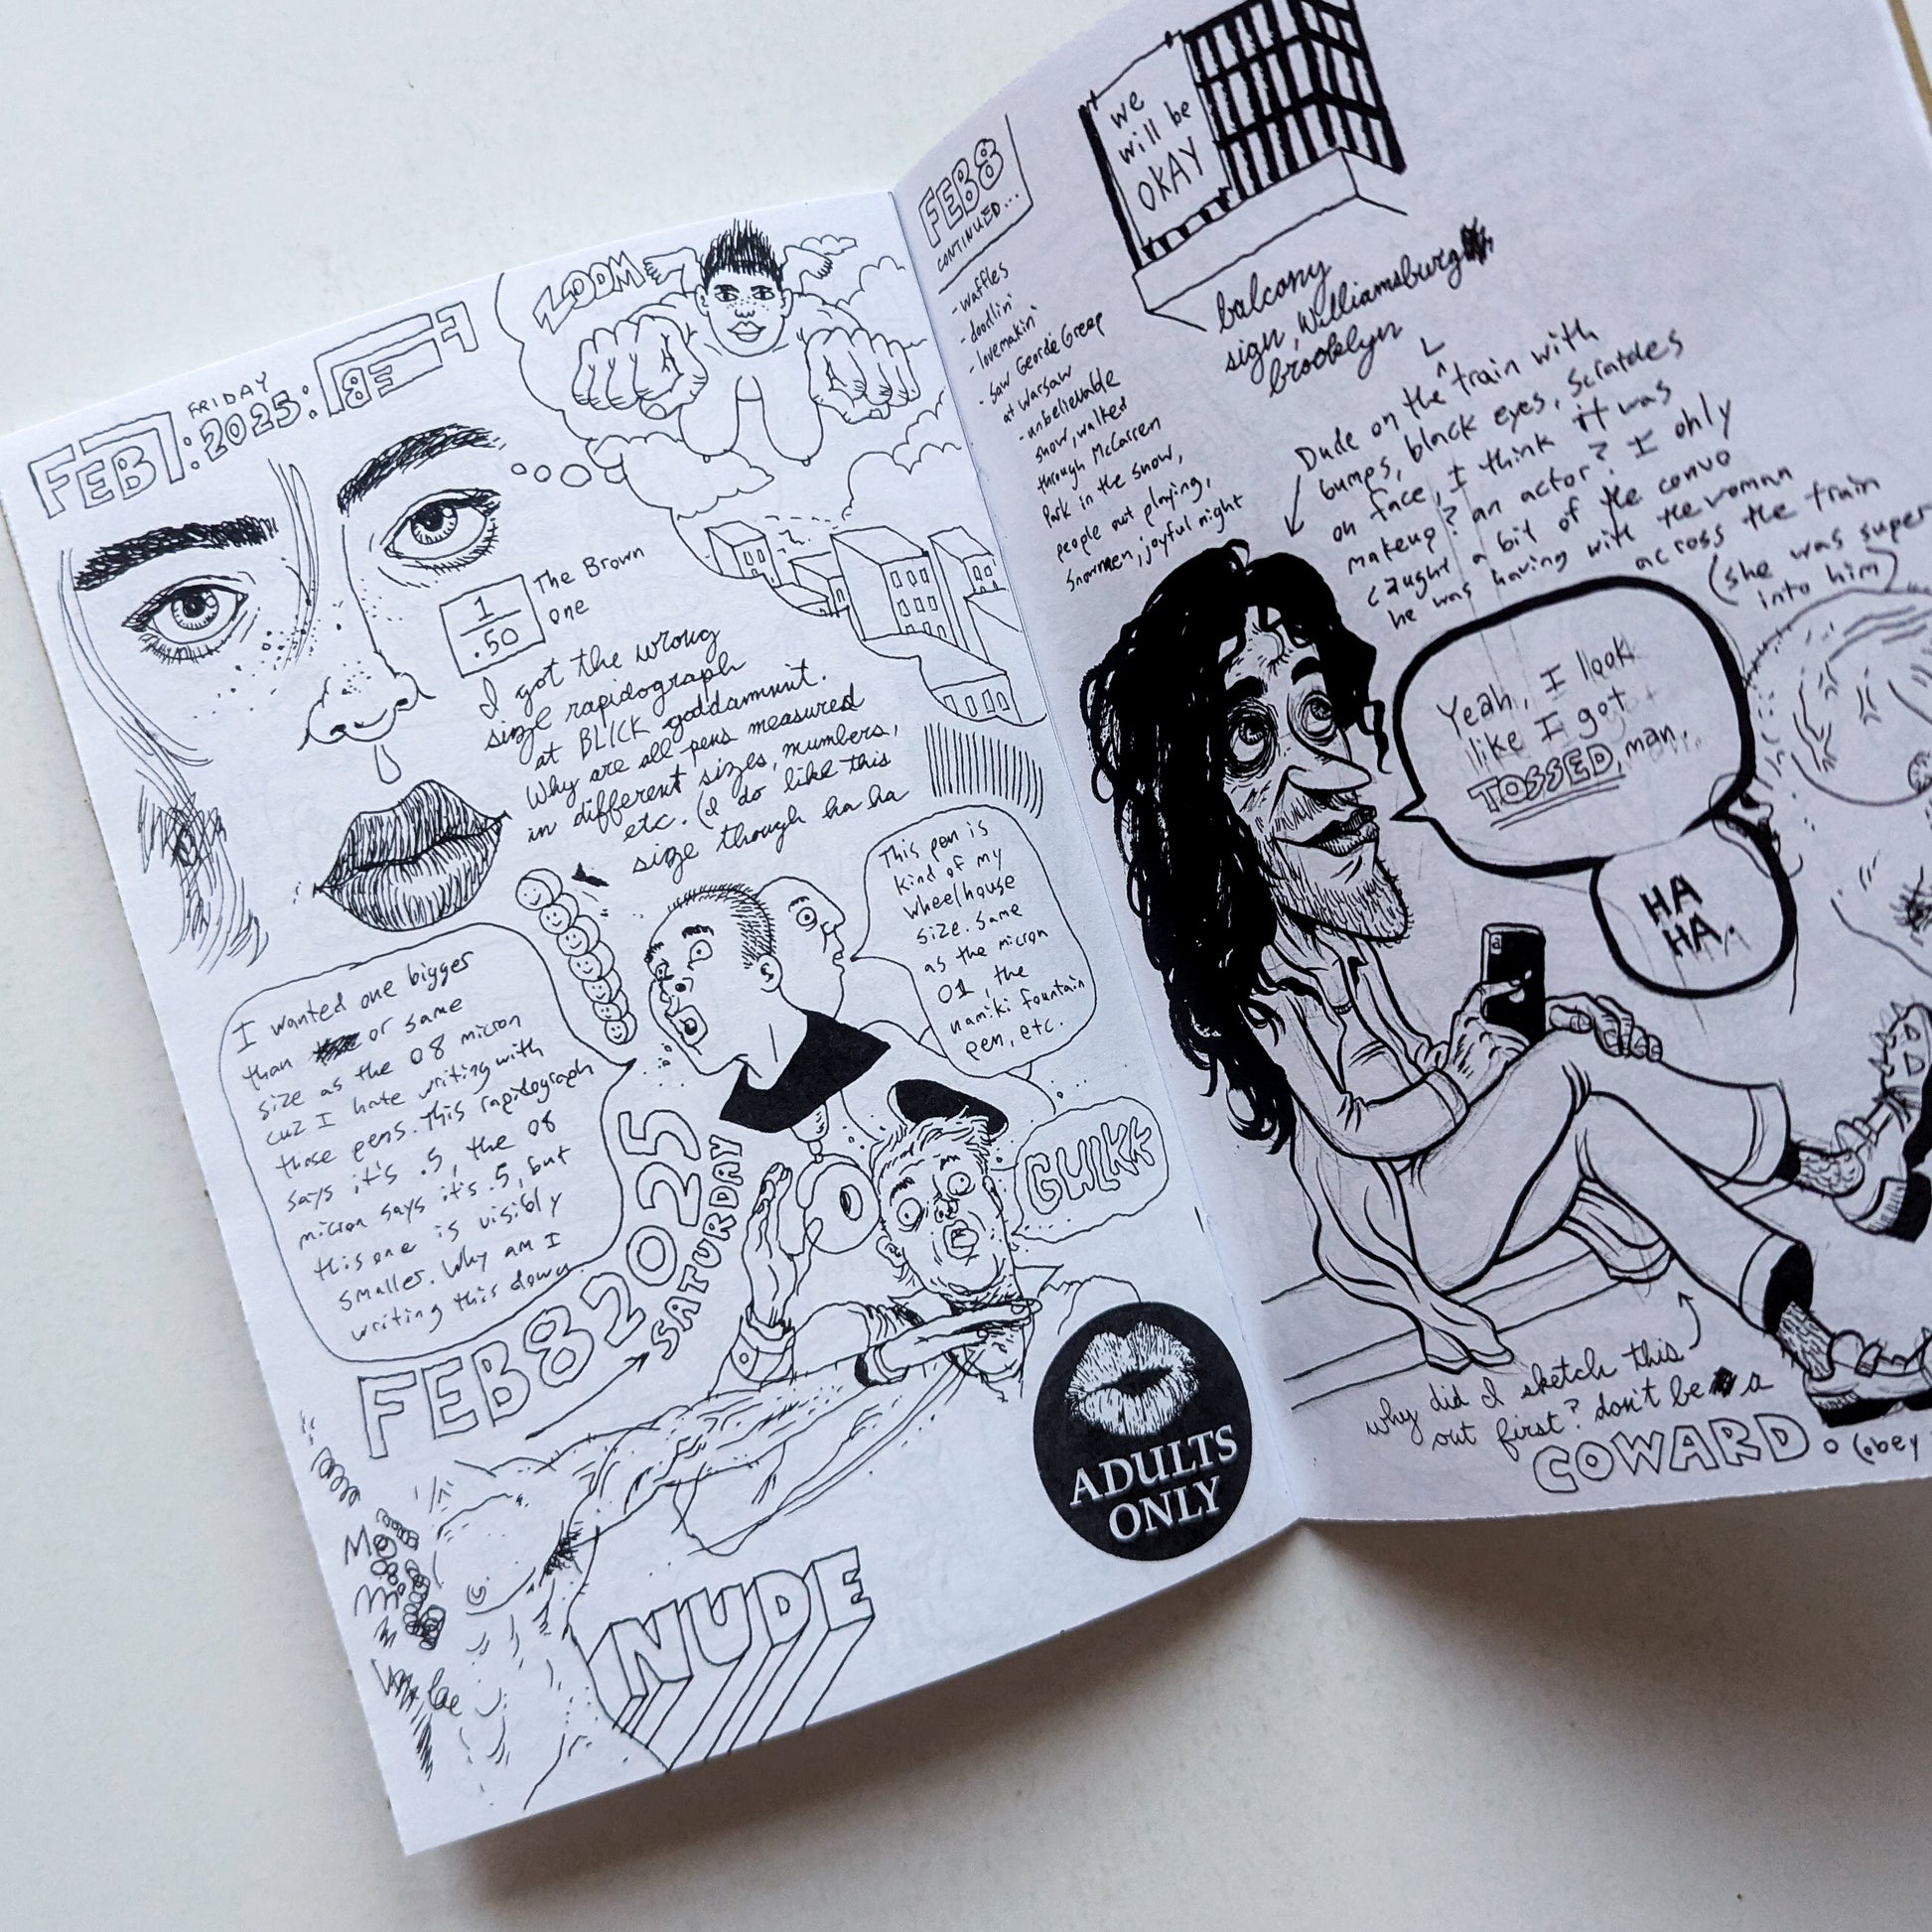 FEB 7:
FRIDAY
2025:
FEB 7
ZOOM
1
.50
The Brown
one
I got the wrong
size rapidograph
at BLICK goddamnit.
Why are all pens measured
in different sizes, numbers,
etc. (I do like this
size though ha ha
This pen is
kind of my
wheelhouse
size. Same
as the micron
01, the
namiki fountain
pen, etc.
I wanted one bigger
than or same
size as the 08 micron
cuz I hate writing with
those pens. This rapidograph
says it's .5, the 08
micron says it's .5, but
this one is visibly
smaller. Why am I
writing this down
GULKK
FEB 8 2025
SATURDAY
NUDE
ADULTS
ONLY
FEB 8
CONTINUED...
- waffles
- doodlin'
- lovemakin'
- saw Geordie Greep
at Warsaw
- unbelievable
snow, walked
through McCarren
Park in the snow,
people out playing,
snowmen, joyful night
we
will be
OKAY
balcony
sign, Williamsburg
brooklyn
Dude on the L train with
bumps, black eyes, scratches
on face, I think it was
makeup? an actor? I only
caught a bit of the convo
he was having with the woman
across the train
(she was super
into him)
Yeah, I look
like I got
TOSSED, man.
HA
HA
why did I sketch this
out first? don't be a
COWARD. (obey